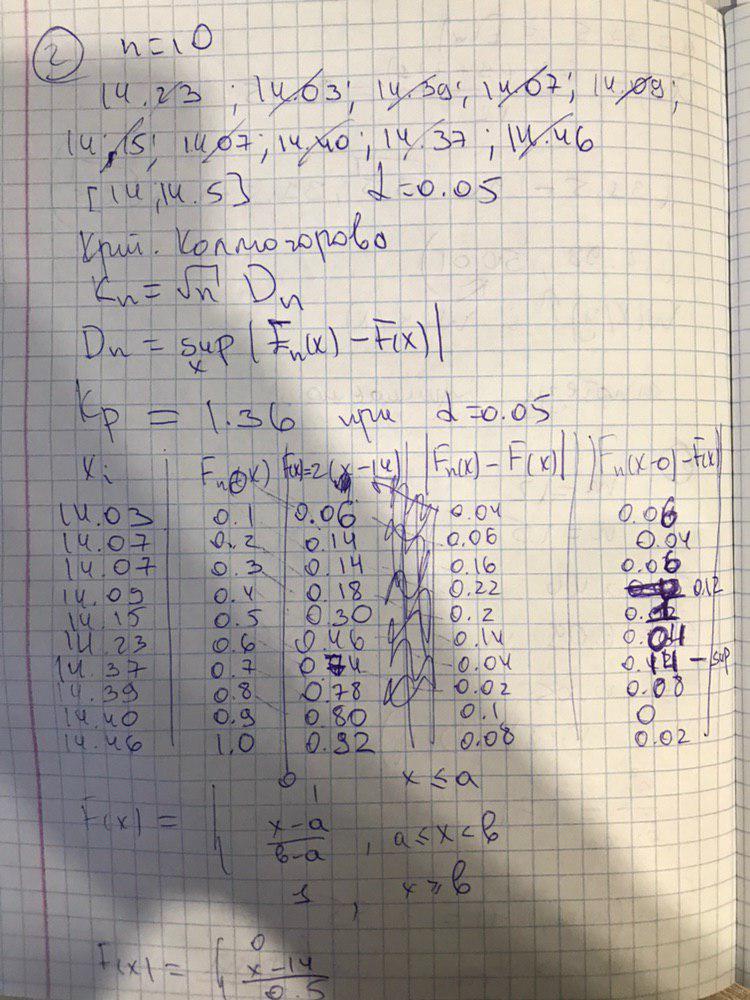 2 n=10
14.23 ; 14.03; 14.39; 14.07; 14.09;
14.15; 14.07; 14.40; 14.37 ; 14.46
[14, 14.5] α=0.05
Крит. Колмогорова
Kn = √n Dn
Dn = sup |Fn(x) - F(x)|
x
Kp = 1.36 при α=0.05
xi Fn(x) F(x)=2(x-14) |Fn(x) - F(x)| |Fn(x-0) - F(x)|
14.03 0.1 0.06 0.04 0.06
14.07 0.2 0.14 0.06 0.04
14.07 0.3 0.14 0.16 0.06
14.09 0.4 0.18 0.22 0.12
14.15 0.5 0.30 0.2
14.23 0.6 0.46 0.14 0.04
14.37 0.7 0.74 0.04 0.14 - sup
14.39 0.8 0.78 0.02 0.08
14.40 0.9 0.80 0.1 0
14.46 1.0 0.92 0.08 0.02
0 , x ≤ a
F(x) = { x-a / b-a , a ≤ x < b
1 , x ≥ b
0
F(x) = { x-14 / 0.5